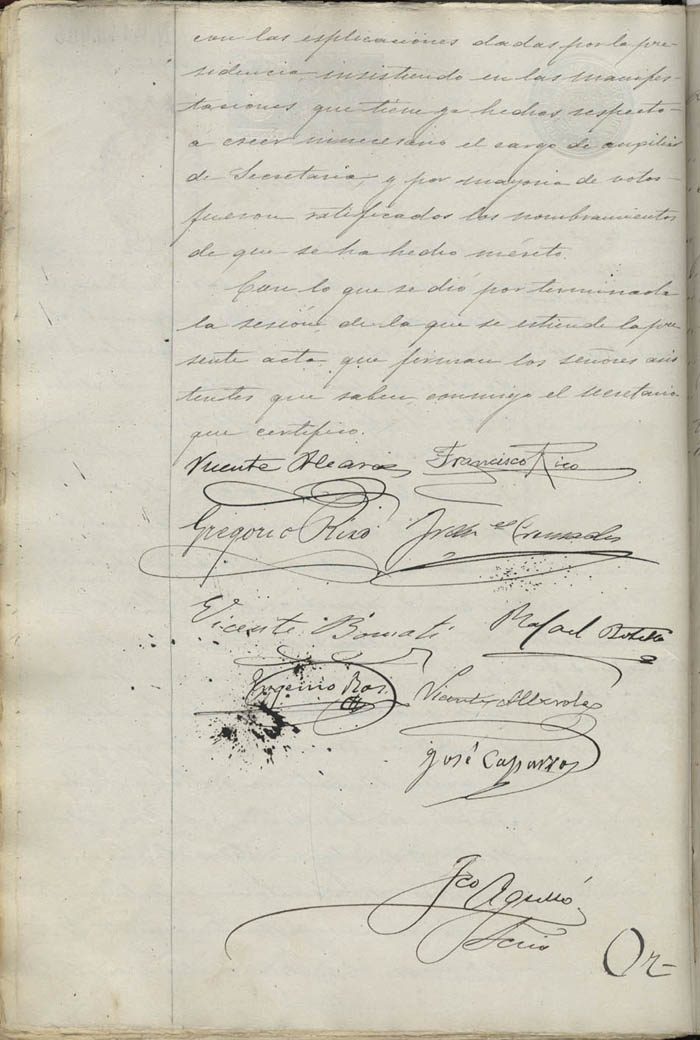 con las esplicaciones dadas por la pre-
sidencia, insistiendo en las manifes-
taciones que tiene ya hechas respecto
a creer innecesario el cargo de auxiliar
de Secretaria, y por mayoria de votos
fueron ratificados los nombramientos
de que se ha hecho mérito.
Con lo que se dió por terminada
la sesión, de la que se estiende la pre
sente acta que firman los señores asis
tentes que saben, conmigo el secretario
que certifico.
Vicente Alcaraz Francisco Rico
Gregorio Rizo Fran co Cremades
Vicente Bernati Rafael Botella
Eugenio Ros Vicente Alberola
José Caparros
Fco Agulló
Scrio
Or-